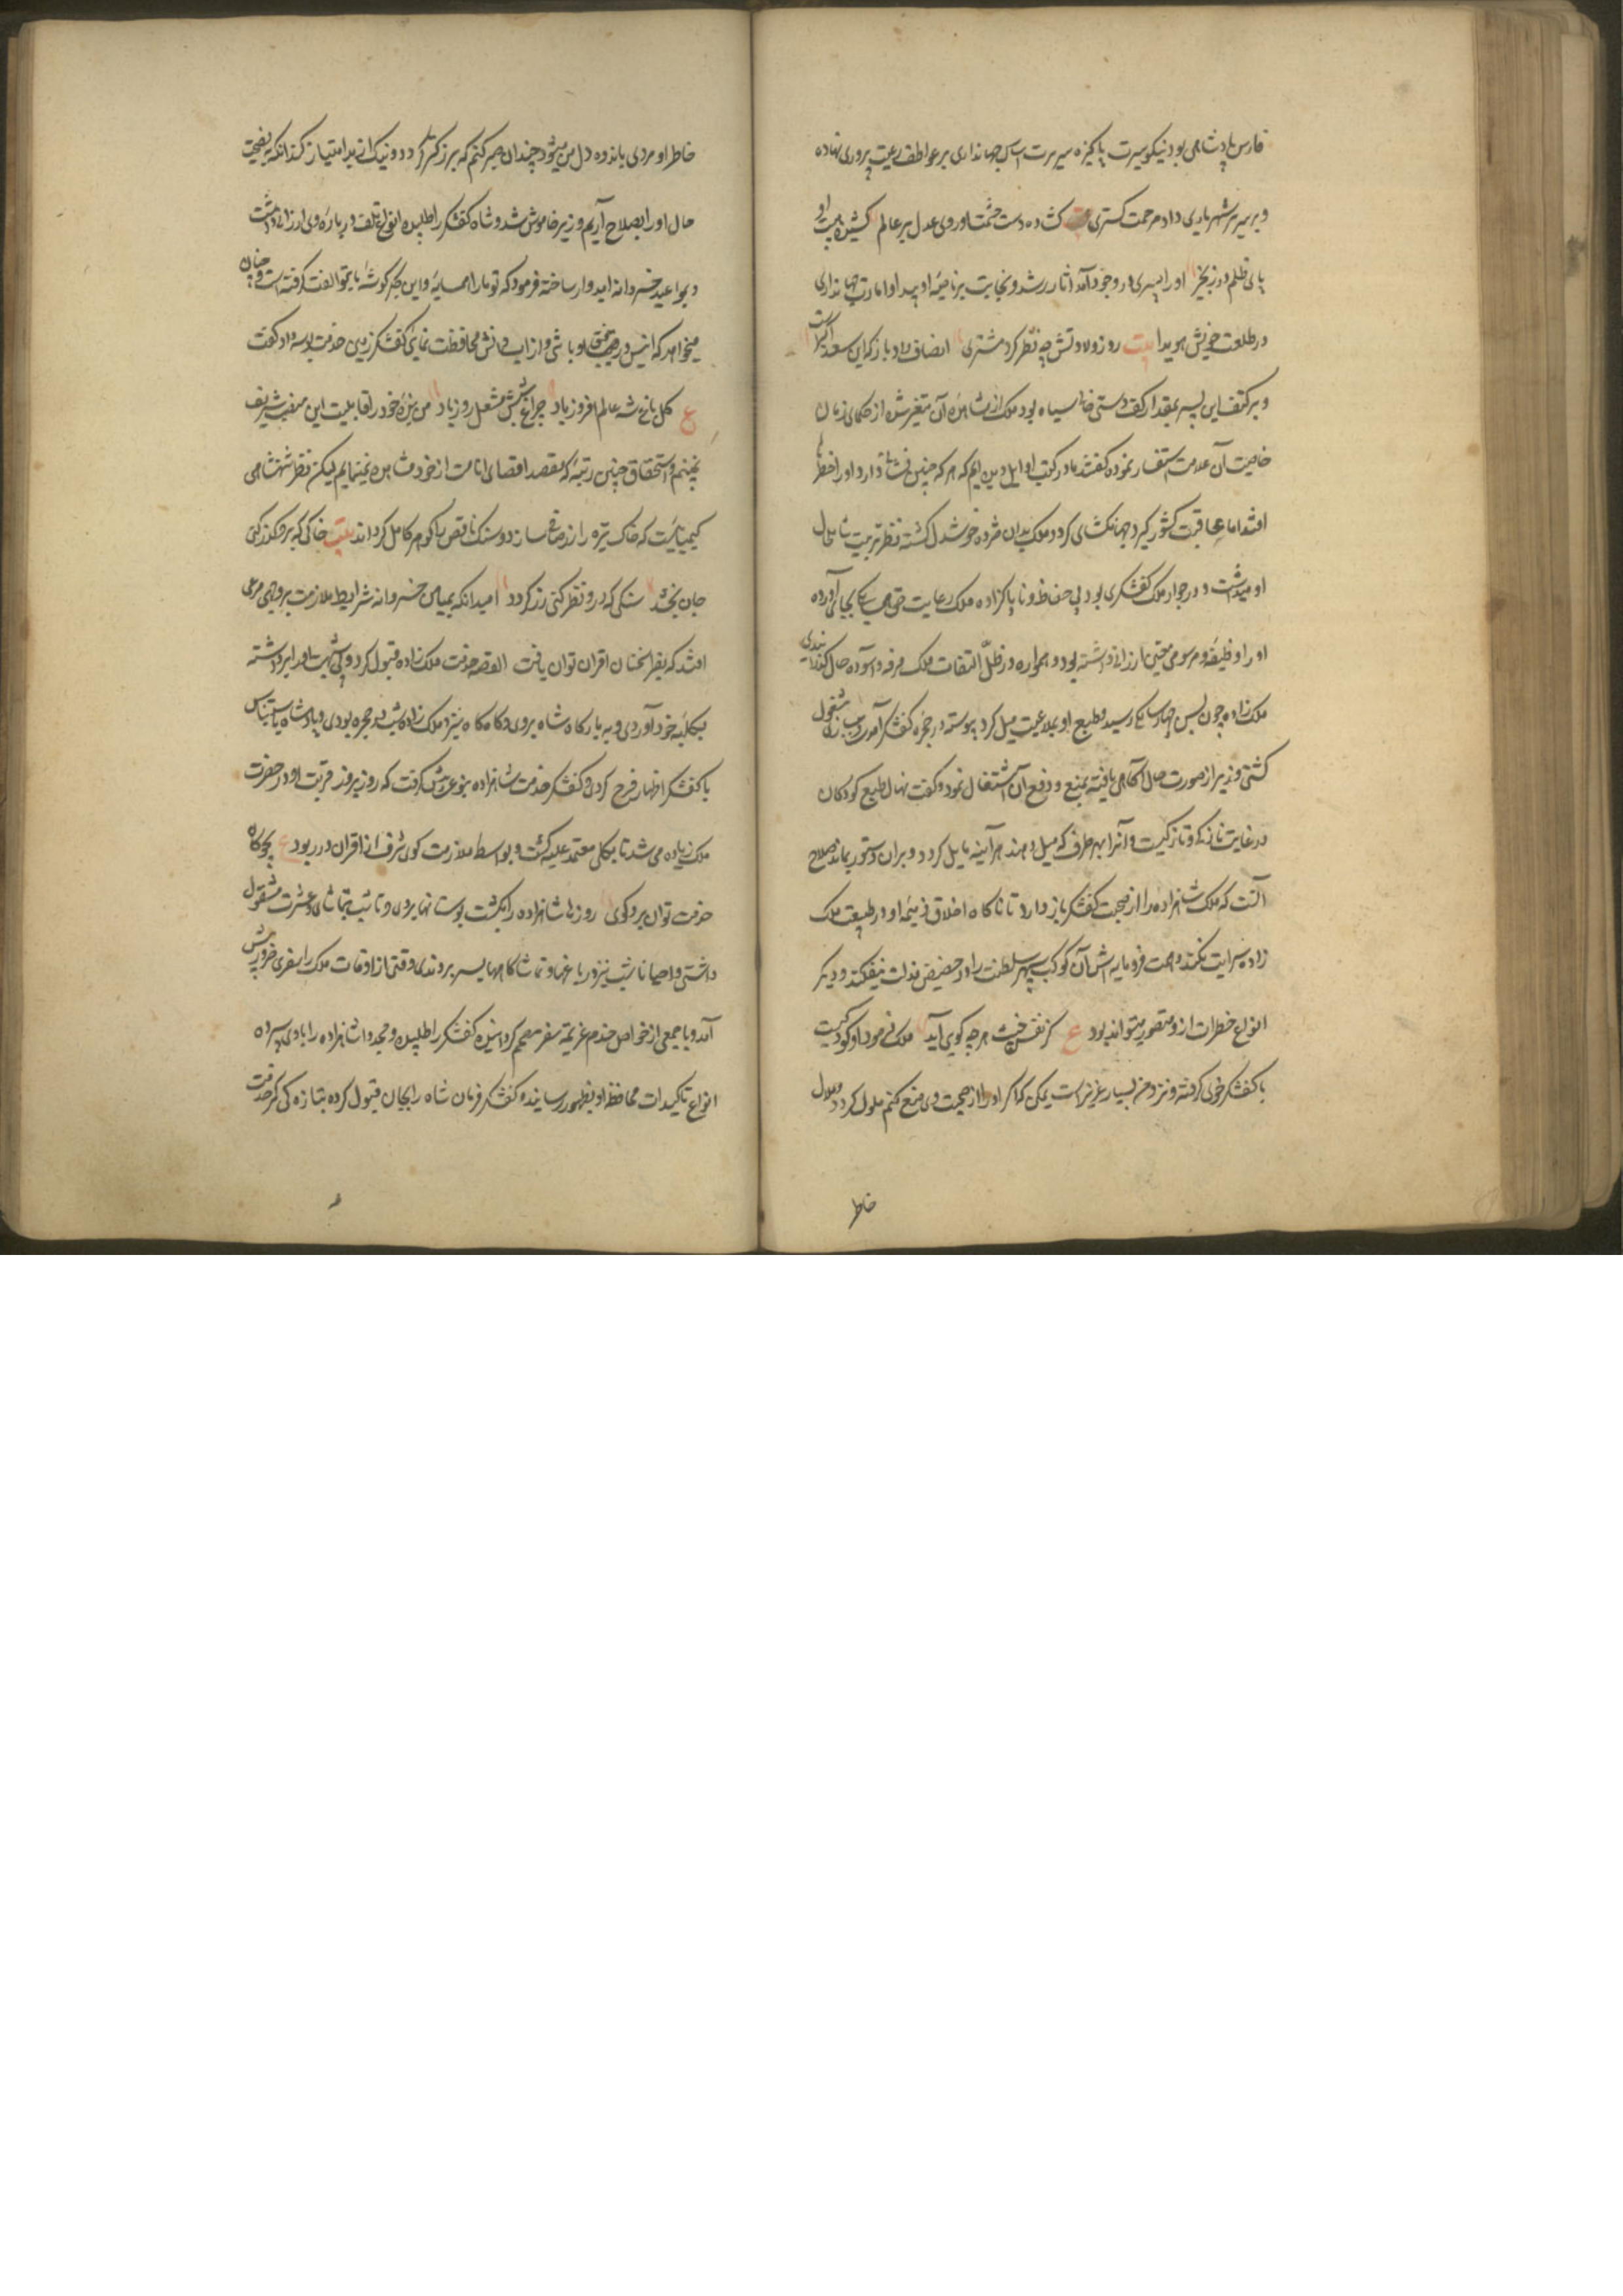 فارس پادشاهی بود نیکو سیرت پاکیزه سریرت اساس جهانداری بر عواطف رعیت پروری نهاده
و بر سریر شهریاری داد مرحمت کستری کشاده دست حشمت او روی عدل بر عالم کشیده هیبت او
پای ظلم در زنجیر او را پسری در وجود آمد آثار رشد و نجابت بر ناصیه او پیدا و امارت جهانداری
در طلعت خویش هویدا بیت روز ولادتش چه نظر کرد مشتری انصاف داد باز کزین سعد اکبر است
و بر کتف این پسر بمقدار کف دستی خال سیاه بود ملک از مشاهده آن متغیر شده از حکمای زمان
خاصیت آن علامت استفسار نمود گفتند ما در کتب اوایل دیده ایم که هر که چنین نشانها دارد او را خطرها
افتد اما عاقبت کشور کیرد و جهانکشای کردد ملک بدان مژده خوشدل کشته نظر تربیت شامل حال
او میداشت و در جوار ملک کفشکری بود بی حفاظ و ناپاکزاده ملک رعایت حق همسایکی بجای آورده
او را وظیفه و مرسومی معین ارزانی داشته بود و همواره در ظل التفات ملک مرفه و آسوده حال کذرانیدی
ملک زاده چون بسن چهار سالکی رسید و طبع او بملاعبت میل کرد پیوسته در حجره کفشکر آمدی و ببازی مشغول
کشتی وزیر از صورت حال آکاهی یافته بمنع و دفع آن اشتغال نمود و گفت نهال طبع کودکان
در غایت نازکی و تازکیست و آنرا بهر طرف که میل دهند هر آینه مایل کردد و بران دستور بماند صلاح
آنست که ملک شاهزاده را از صحبت کفشکر باز دارد تا ناکاه اخلاق ذمیمه او در طبیعت ملک
زاده سرایت نکند و همت فرومایه اش آن کوکب سپهر سلطنت را در حضیض مذلت نیفکند و دیکر
انواع خطرات ازو متصور میتواند بود ع کز نفس خبیث هر چه کویی آید ملک فرمود او کودکیست
با کفشکر خوی کرفته و نزد من بسیار عزیز است یمکن که اگر او را از صحبت وی منع کنم ملول کردد و ملال
خاطر
خاطر او مردی باندوه دل من میشود چندان صبر کنم که بزرکتر کردد و نیک از بد امتیاز کند آنکه بنصیحت
حال او را بصلاح آریم وزیر خاموش شد و شاه کفشکر را طلبیده انواع تلطف در باره وی ارزانی داشت
و بمواعید خسروانه امیدوار ساخته فرمود که تو ما را همسایه و این جکر کوشه با تو الفت کرفته است و چنان
میخواهد که انیس و رفیق او باشی و از آب و آتش محافظت نمایی کفشکر زمین خدمت بوسه داد و گفت
ع کل باغ شه عالم افروز باد چراغ شبش مشعل روز باد من بنده خود را قابلیت این منصب شریف
نمیبینم و استحقاق چنین رتبه که مقصد اقصای امانت از خود مشاهده نمینمایم لیکن نظر شهنشاهی
کیمیائیست که خاک تیره را زر خالص سازد و سنک ناقص را کوهر کامل کرداند بیت خاکی که برو کذر کنی
جان بخشد سنکی که درو نظر کنی زر کردد امید آنکه بمیامن خسروانه شرایط ملازمت بر وجهی مرعی
افتد که بفر تحسین اقران توان یافت القصه خدمت ملک زاده قبول کرد و اوقات او را برداشته
بکلبه خود آوردی و به بارکاه شاه بردی و کاه کاه نیز ملک زاده شب در حجره بودی و پادشاه باستیناس
با کفشکر اظهار فرح کردی و کفشکر خدمت شاهزاده بنوعی پیش گرفت که روز بروز قربت او در حضرت
ملک زیاده می شد تا بکلی معتمد علیه کشت و بواسطه ملازمت کوی شرف از اقران در ربود ع بچوکان
خدمت توان برد کوی روزها شاهزاده را بکشت بوستانها بردی و تا شب بتماشا و عشرت مشغول
داشتی و احیانا شب نیز در باغها و تماشاکاهها بسر بردندی وقتی از اوقات ملک را سفری ضروری پیش
آمد و با جمعی از خواص خدم عزیمت سفر مصمم کردانیده کفشکر را طلبیده و مجددا شاهزاده را بدو سپرده
انواع تاکیدات محافظه او بظهور رسانید و کفشکر فرمان شاه را بجان قبول کرده بتازه کی کمر خدمت